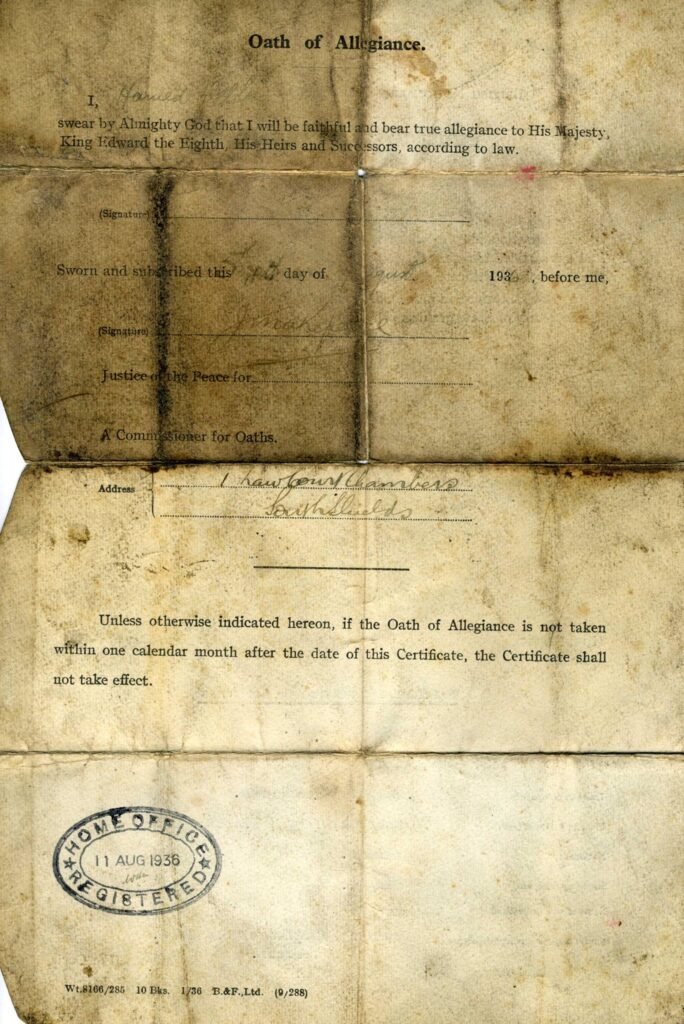 Oath of Allegiance.
I,
swear by Almighty God that I will be faithful and bear true allegiance to His Majesty,
King Edward the Eighth, His Heirs and Successors, according to law.
(Signature)
Sworn and subscribed this day of 193 , before me,
(Signature)
Justice of the Peace for
A Commissioner for Oaths.
Address 1 Law Court Chambers
South Shields
Unless otherwise indicated hereon, if the Oath of Allegiance is not taken
within one calendar month after the date of this Certificate, the Certificate shall
not take effect.
HOME OFFICE
11 AUG 1936
REGISTERED
Wt.8166/285 10 Bks. 1/36 B.&F.,Ltd. (9/288)